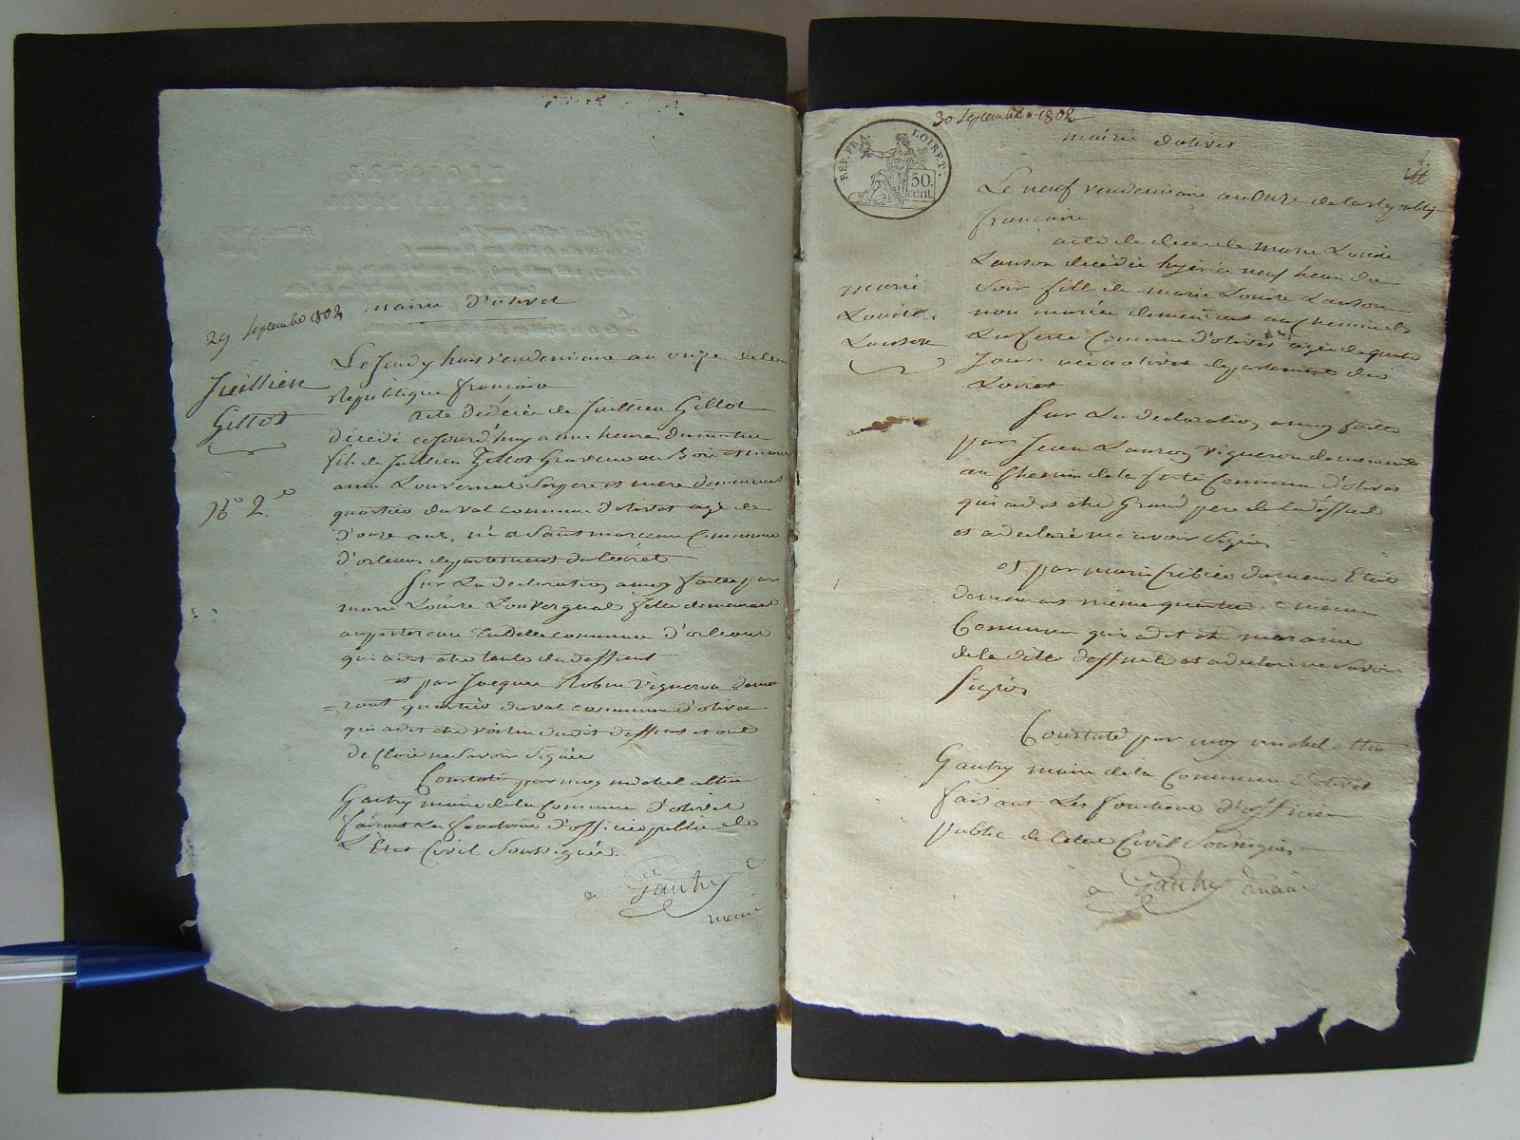 29 Septembre 1802
mairie d'olivet
Juillien
Gillot
N° 2.
Le Jeudy huit vendemiaire au onze de la
Republique francaise
acte de décès de Juillien Gillot
décédé cejourd'huy a une heure du matin
fils de Juillien Gillot Graveur au Bois et marie
anne Louvernal Sergere et mere demeurant
quartier du val commune d'olivet agé de
d'onze ans, né a Saint marceau Commune
d'orleans departement du loiret
Sur La declaration a moy faite par
marie Louise Louvergnal fille demeurant
commune d'orleans
qui a dit etre tante du deffunt
et par Jacques Robin vigneron demeu
rant quartier du val commune d'olivet
qui a dit etre voisin du dit deffunt et ont
declaré ne savoir Signer
Constaté par moy michel altin
Gautry maire de la Commune d'olivet
faisant Les fonctions d'officier public de
L'Etat Civil Soussigné
Gautry
maire
30 Septembre 1802
REP. FRA. LOIRET.
50.
cent.
mairie d'olivet
Le neuf vendemiaire au Onze de la Republiq
francaise
marie
Louise
Lanson
acte de decès de marie Louise
Lanson decédée hyer a neuf heure du
Soir fille de marie Louise Lanson
non mariée demeurant au Chemin de
La ferté Commune d'olivet agée de quatre
Jours née a olivet departement du
Loiret
Sur La declaration a moy faite
par Jean Lanson vigneron demeurant
au Chemin de la ferté Commune d'olivet
qui a dit etre Grand pere de La deffunte
et a declaré ne savoir Signer
et par marie Cribier
demeurant même quartier même
Commune qui a dit etre maraine
de la dite deffunte et a declaré ne savoir
Signer
Constaté par moy michel altin
Gautry maire de la Commune d'olivet
faisant Les fonctions d'officier
public de l'etat Civil Soussigné
Gautry maire